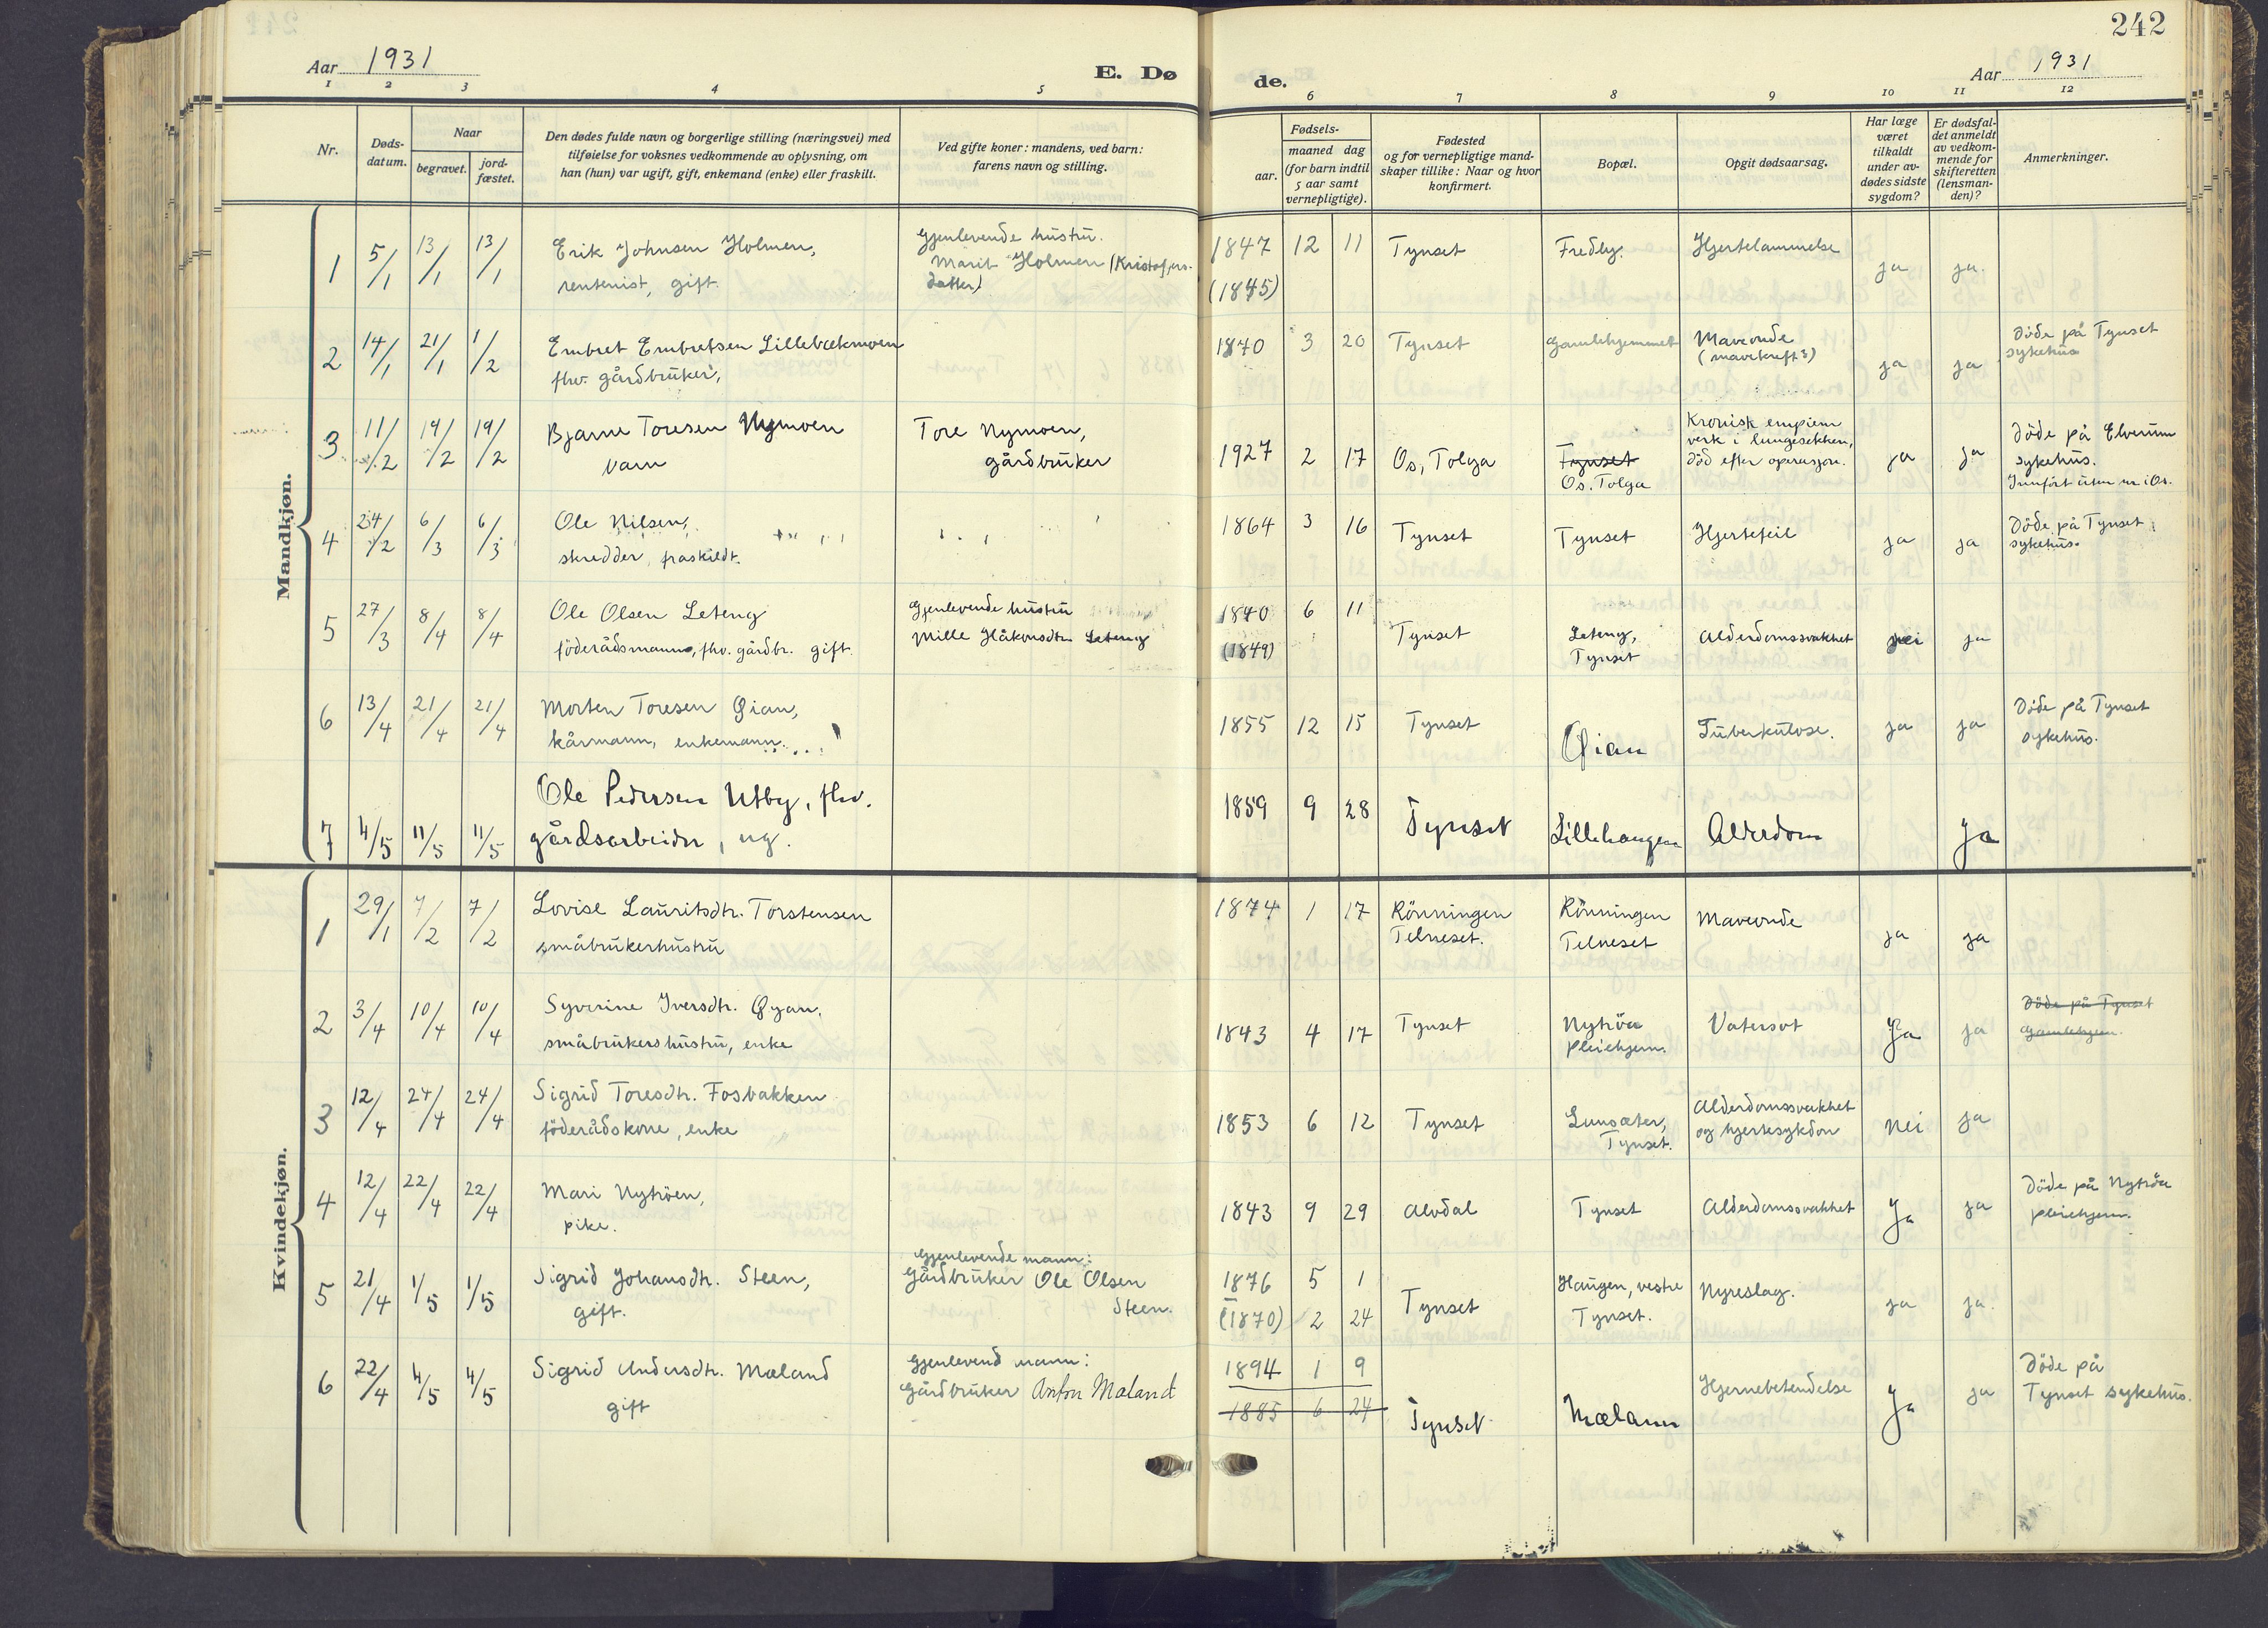 242
Aar 1931
E. Dø
de.
Aar 1931
1 2 3 4 5 6 7 8 9 10 11 12
Nr.
Døds-
datum.
Naar
begravet.
jord-
fæstet.
Den dødes fulde navn og borgerlige stilling (næringsvei) med
tilføielse for voksnes vedkommende av oplysning, om
han (hun) var ugift, gift, enkemand (enke) eller fraskilt.
Ved gifte koner: mandens, ved barn:
farens navn og stilling.
Fødsels-
aar.
maaned dag
(for barn indtil
5 aar samt
vernepligtige).
Fødested
og for vernepligtige mand-
skaper tillike: Naar og hvor
konfirmert.
Bopæl.
Opgit dødsaarsag.
Har læge
været
tilkaldt
under av-
dødes sidste
sygdom?
Er dødsfal-
det anmeldt
av vedkom-
mende for
skifteretten
(lensman-
den)?
Anmerkninger.
Mandkjøn.
1 5/1 13/1 13/1
Erik Johnsen Holmen,
rentenist, gift.
Gjenlevende hustru.
Marit Holmen (Kristofers-
datter)
1847 12 11
(1845)
Tynset
Fredly.
Hjertelammelse
ja ja.
2 14/1 21/1 1/2
Embret Embretsen Lillebækmoen
fhv. gårdbruker,
1870 3 20
Tynset
Gamlehjemmet
Maveonde
(mavekreft?)
ja ja
Döde på Tynset
sykehus
3 11/2 19/2 19/2
Bjarne Toresen Nymoen
barn
Tore Nymoen,
gårdbruker
1927 2 17
Os, Tolga
Tynset
Os. Tolga
Kronisk empiem
verk i lungesekken,
död efter operasjon.
ja ja
Döde på Elverum
sykehus.
Innført uten nr i Os.
4 24/2 6/3 6/3
Ole Nilsen,
skredder, fraskildt.
1864 3 16
Tynset
Tynset
Hjertefeil
ja ja
Döde på Tynset
sykehus.
5 27/3 8/4 8/4
Ole Olsen Leteng
föderådsmann, fhv. gårdbr. gift.
Gjenlevende hustru
Mille Håkonsdtr. Leteng
1840 6 11
(1849)
Tynset
Leteng,
Tynset
Alderdomssvakhet
nei ja
6 13/4 21/4 21/4
Morten Toresen Qian,
kårmann, enkemann.
1855 12 15
Tynset
Qian
Tuberkulose.
ja ja
Döde på Tynset
sykehus.
7 4/5 11/5 11/5
Ole Pedersen Utby, fhv.
gårdsarbeider, ug.
1859 9 28
Tynset
Lillehaugen
Alderdom
ja
Kvindekjøn.
1 29/1 7/2 7/2
Lovise Lauritsdtr. Torstensen
småbrukerhustru
1874 1 17
Rönningen
Telneset.
Rönningen
Telneset
Maveonde
ja ja
2 3/4 10/4 10/4
Syverine Iversdtr. Qyan.
småbrukershustru, enke
1843 4 17
Tynset
Nytröa
pleiehjem.
Vatersot
Ja ja
Döde på Tynset
Gamlehjem.
3 12/4 24/4 24/4
Sigrid Toresdtr. Fosbakken
föderådskone, enke
1853 6 12
Tynset
Lunsæter,
Tynset.
Alderdomssvakhet
og hjertesykdom
nei ja
4 12/4 22/4 22/4
Mari Nytröen,
pike.
1843 9 29
Alvdal
Tynset
Alderdomssvakhet
Ja ja
Döde på Nytröa
pleiehjem.
5 21/4 1/5 1/5
Sigrid Johansdtr. Steen,
gift.
Gjenlevende mann:
Gårdbruker Ole Olsen
Steen.
1876 5 1
(1870) 2 24
Tynset
Haugen, vestre
Tynset.
Nyreslag.
ja ja.
6 22/4 4/5 4/5
Sigrid Andersdtr. Mæland
gift
Gjenlevend mann:
Gårdbruker Anton Mæland
1894 1 9
1885 6 24
Tynset
Mælann
Hjernebetendelse
Ja ja
Döde på
Tynset sykehus.